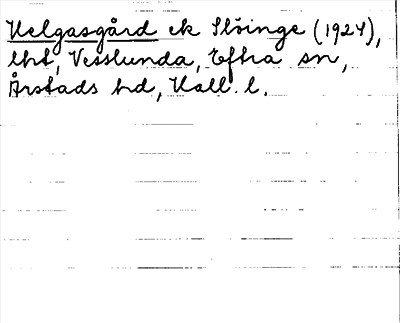 Helgasgård ek Slöinge (1924),
lht, Vesslunda, Eftra sn,
Årstads hd, Hall. l.